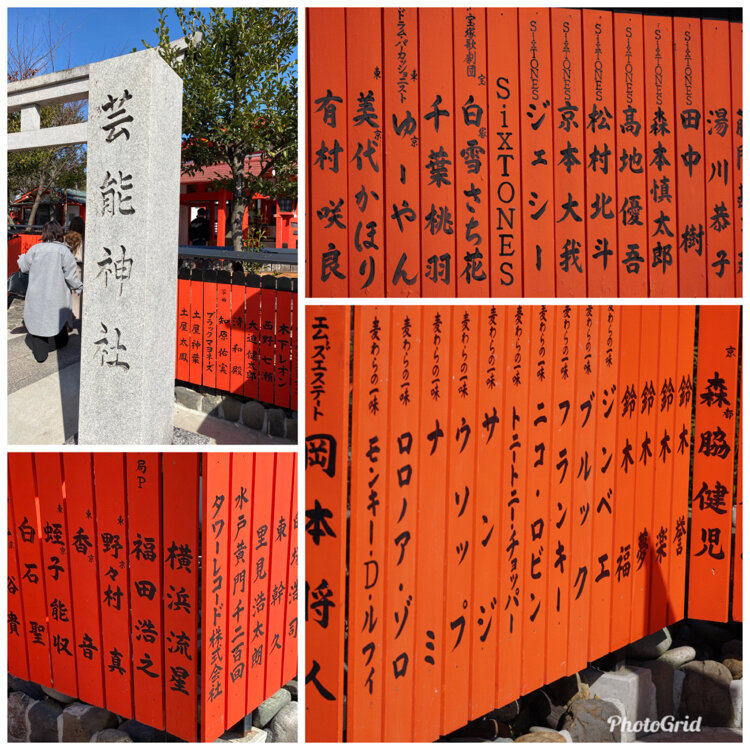 芸能神社
木下ユオン
西野七瀬
大迫健太郎
清和殿
知原佑実
ブラックマヨネーズ
土屋神葉
土屋太鳳
湯川恭子
SixTONES 田中樹
SixTONES 森本慎太郎
SixTONES 髙地優吾
SixTONES 松村北斗
SixTONES 京本大我
SixTONES ジェシー
SixTONES
宝塚歌劇団 白雪さち花
千葉桃羽
ドラム・パーカッショニスト ゆーやん
東京 美代かほり
有村咲良
東幹久
里見浩太朗
水戸黄門千二百回
タワーレコード株式会社
横浜流星
局P 福田浩之
東京 野々村真
香音
東京 蛭子能収
白石聖
京都 森脇健児
鈴木誉
鈴木楽
鈴木夢
鈴木福
麦わらの一味 ジンベエ
麦わらの一味 ブルック
麦わらの一味 フランキー
麦わらの一味 ニコ・ロビン
麦わらの一味 トニートニー・チョッパー
麦わらの一味 サンジ
麦わらの一味 ウソップ
麦わらの一味 ナミ
麦わらの一味 ロロノア・ゾロ
麦わらの一味 モンキー・D・ルフィ
エムズエステート 岡本将人
PHOTOGRID